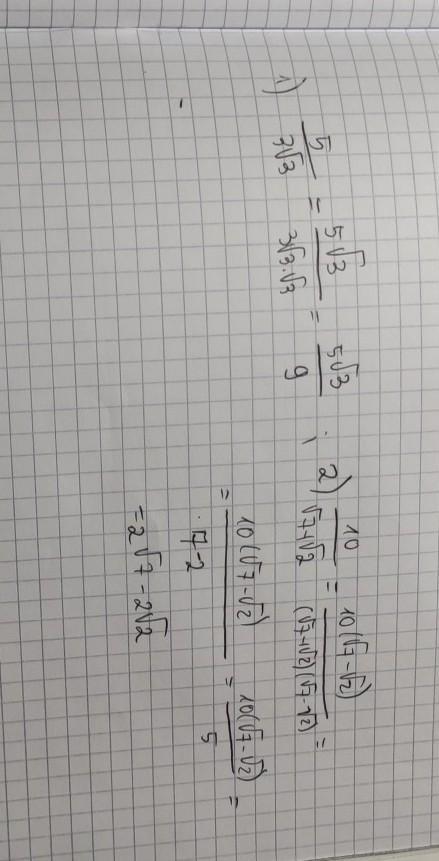 1) 5/(3√3) = 5√3/(3√3·√3) = 5√3/9 ; 2) 10/(√7+√2) = 10(√7-√2)/((√7+√2)(√7-√2)) =
= 10(√7-√2)/(7-2) = 10(√7-√2)/5 =
= 2√7 - 2√2